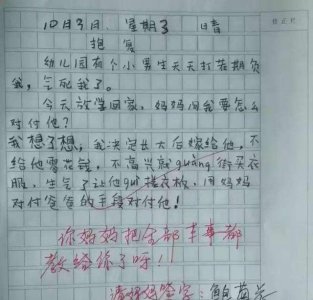 10月9日 星期3 晴
抱复
幼儿园有个小男生天天打若期负
我，气死我了。
今天放学回家，妈妈问我要怎么
对付他？
我想了想，我决定长大后嫁给他，不
给他零花钱，不高兴就guàng街买衣
服，生气了让他guì搓衣板，用妈妈
对付爸爸的手段对付他！
你妈妈把全部本事都
教给你了呀！！
请妈妈签字：鲍